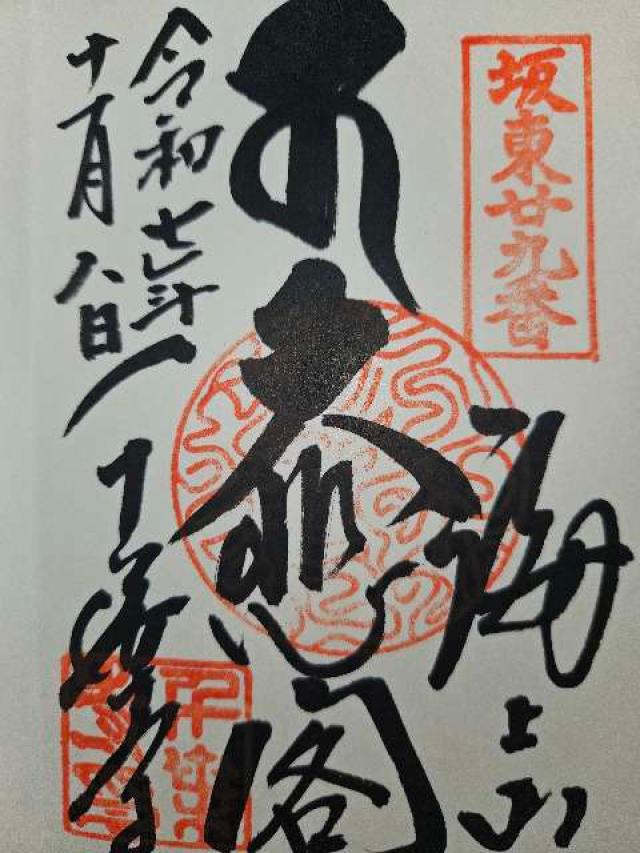 坂東廿九番
海上山
大悲閣
千葉寺
令和七年
十一月八日